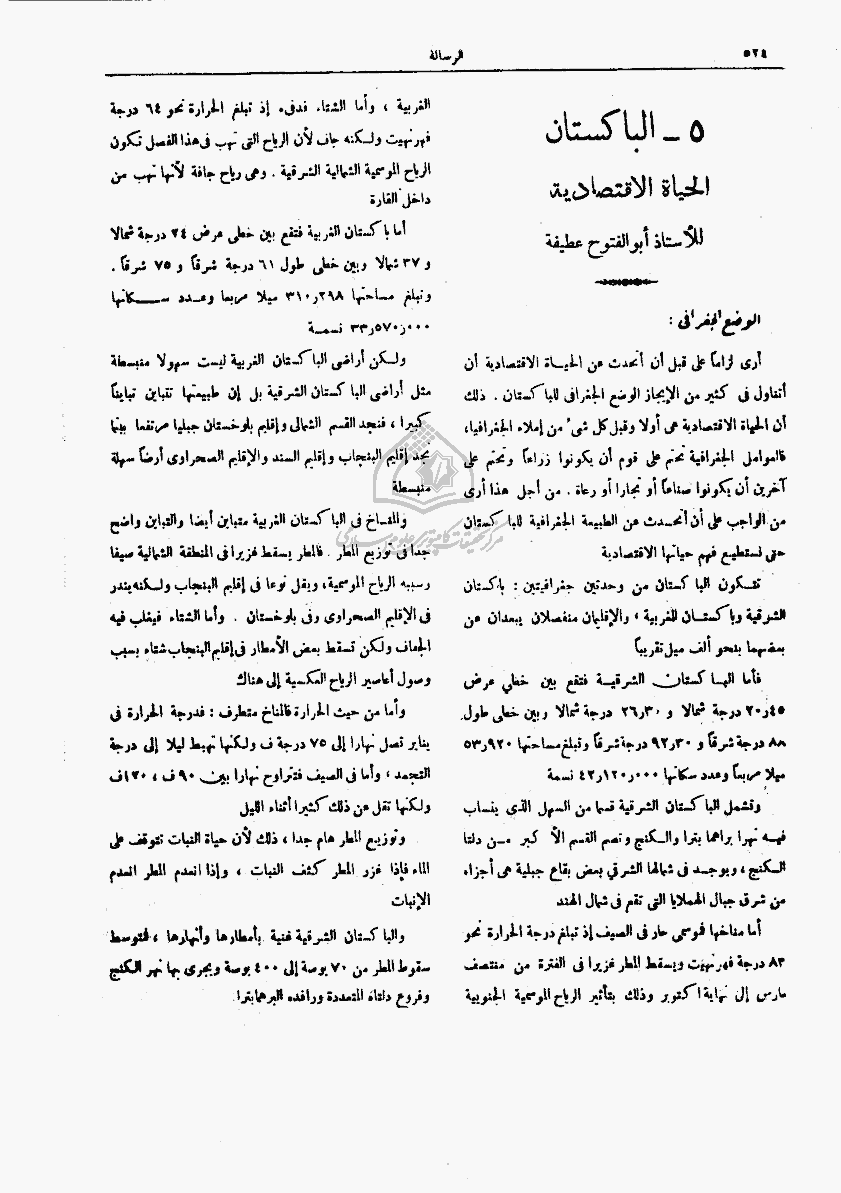 ٥٢٤
الرسالة
٥ ــ الباكستان
الحياة الاقتصادية
للأستاذ أبو الفتوح عطيفة
الوضع الجغرافى :
أرى لزاماً على قبل أن أتحدث عن الحياة الاقتصادية أن
أتناول فى كثير من الإيجاز الوضع الجغرافى للباكستان . ذلك
أن الحياة الاقتصادية هى أولا وقبل كل شىء من إملاء الجغرافيا،
فالعوامل الجغرافية تحتم على قوم أن يكونوا زراعاً وتحتم على
آخرين أن يكونوا صناعاً أو تجارا أو رعاة . من أجل هذا أرى
من الواجب على أن أتحدث عن الطبيعة الجغرافية للباكستان
حتى نستطيع فهم حياتها الاقتصادية
تتكون الباكستان من وحدتين جغرافيتين : باكستان
الشرقية وباكستان الغربية ، والإقليمان منفصلان يبعدان عن
بعضهما بنحو ألف ميل تقريباً
فأما الباكستان الشرقية فتقع بين خطي عرض
٢٠ر٤٥ درجة شمالا و ٢٦ر٣٠ درجة شمالا وبين خطى طول
٨٨ درجة شرقاً و ٩٢ر٣٠ درجة شرقاً وتبلغ مساحتها ٥٣ر٩٢٠
ميلا مربعاً وعدد سكانها ٤٢ر١٢٠ر٠٠٠ نسمة
وتشمل الباكستان الشرقية قسما من السهل الذى ينساب
فيه نهرا براهما بترا والكنج وتضم القسم الأكبر من دلتا
الكنج ، ويوجد فى شمالها الشرقي بعض بقاع جبلية هى أجزاء
من شرق جبال الهملايا التى تقع فى شمال الهند
أما مناخها فموسمى حار فى الصيف إذ تبلغ درجة الحرارة نحو
٨٣ درجة فهرنهيت ويسقط المطر غزيرا فى الفترة من منتصف
مارس إلى نهاية اكتوبر وذلك بتأثير الرياح الموسمية الجنوبية
الغربية ، وأما الشتاء فدفىء إذ تبلغ الحرارة نحو ٦٤ درجة
فهرنهيت ولكنه جاف لأن الرياح التى تهب فى هذا الفصل تكون
الرياح الموسمية الشمالية الشرقية . وهى رياح جافة لأنها تهب من
داخل القارة
أما باكستان الغربية فتقع بين خطى عرض ٢٤ درجة شمالا
و ٣٧ شمالا وبين خطى طول ٦١ درجة شرقاً و ٧٥ شرقاً .
وتبلغ مساحتها ٣١٠ر٢٩٨ ميلا مربعا وعدد سكانها
٣٣ر٥٧٠ر٠٠٠ نسمة
ولكن أراضى الباكستان الغربية ليست سهولا منبسطة
مثل أراضى الباكستان الشرقية بل إن طبيعتها تتباين تبايناً
كبيرا ، فنجد القسم الشمالى وإقليم بلوخستان جبليا مرتفعا بينما
نجد إقليم البنجاب وإقليم السند والإقليم الصحراوى أرضاً سهلة
منبسطة
والمناخ فى الباكستان الغربية متباين أيضا والتباين واضح
جدا فى توزيع المطر . فالمطر يسقط غزيرا فى المنطقة الشمالية صيفا
وسببه الرياح الموسمية، ويقل نوعا فى إقليم البنجاب ولكنه يندر
فى الإقليم الصحراوى وفى بلوخستان . وأما الشتاء فيغلب فيه
الجفاف ولكن تسقط بعض الأمطار فى إقليم البنجاب شتاء بسبب
وصول أعاصير الرياح العكسية إلى هناك
وأما من حيث الحرارة فالمناخ متطرف : فدرجة الحرارة فى
يناير تصل نهارا إلى ٧٥ درجة ف ولكنها تهبط ليلا إلى درجة
التجمد ، وأما فى الصيف فتتراوح نهارا بين ٩٠ ف ، ١٢٠ ف
ولكنها تقل عن ذلك كثيرا أثناء الليل
وتوزيع المطر هام جدا ، ذلك لأن حياة النبات تتوقف على
الماء فإذا غزر المطر كثف النبات ، وإذا انعدم المطر انعدم
الإنبات
والباكستان الشرقية غنية بأمطارها وأنهارها ، فمتوسط
سقوط المطر من ٧٠ بوصة إلى ٤٠٠ بوصة ويجرى بها نهر الكنج
وفروع دلتاه المتعددة ورافده البرهمابترا